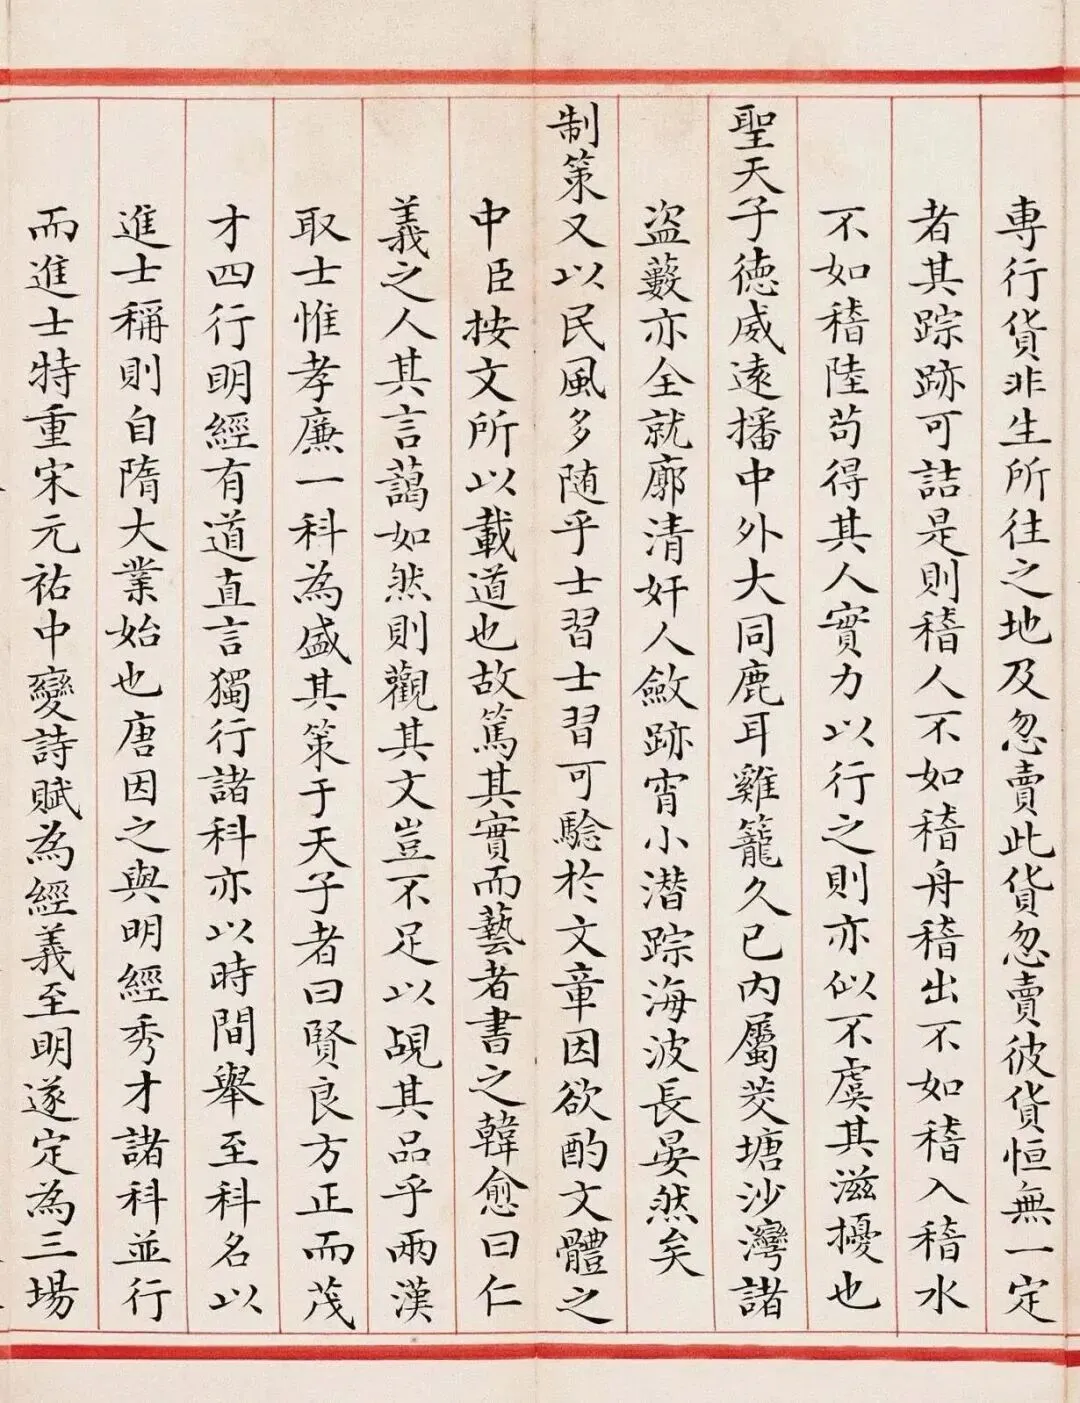 專行貨非生所往之地及忽賣此貨忽賣彼貨恒無一定
者其踪跡可詰是則稽人不如稽舟稽出不如稽入稽水
不如稽陸苟得其人實力以行之則亦似不虞其滋擾也
聖天子德威遠播中外大同鹿耳雞籠久已內屬茭塘沙灣諸
盜藪亦全就廓清奸人斂跡宵小潛踪海波長晏然矣
制策又以民風多随乎士習士習可驗於文章因欲酌文體之
中臣按文所以載道也故篤其實而藝者書之韓愈曰仁
義之人其言藹如然則觀其文豈不足以覘其品乎兩漢
取士惟孝廉一科為盛其策于天子者曰賢良方正而茂
才四行明經有道直言獨行諸科亦以時間舉至科名以
進士稱則自隋大業始也唐因之與明經秀才諸科並行
而進士特重宋元祐中變詩賦為經義至明遂定為三場